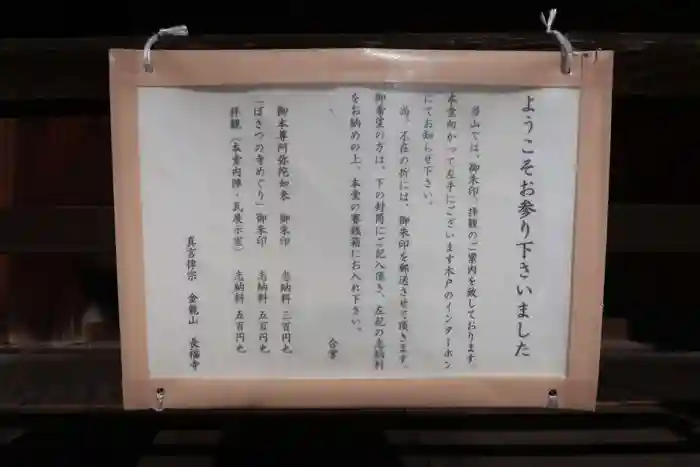 ようこそお参り下さいました
当山では、御朱印、拝観のご案内を致しております。
本堂向かって左手にございます木戸のインターホン
にてお知らせ下さい。
尚、不在の折には、御朱印を郵送させて頂きます。
御希望の方は、下の封筒にご記入頂き、左記の志納料
をお納めの上、本堂の賽銭箱にお入れ下さい。
合掌
御本尊阿弥陀如来 御朱印 志納料 三百円也
「ぼさつの寺めぐり」御朱印 志納料 五百円也
拝観(本堂内陣・瓦展示室) 志納料 五百円也
真言律宗 金龍山 長福寺